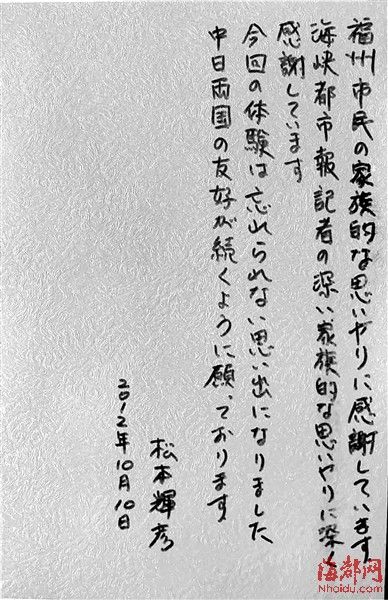 福州市民の家族的な思いやりに感謝しています
海峡都市報記者の深い家族的な思いやりに深く
感謝しています
今回の体験は忘れられない思い出になりました
中日両国の友好が続くように願っております
松本輝彦
2012年10月10日
海都网
Nhaidu.com